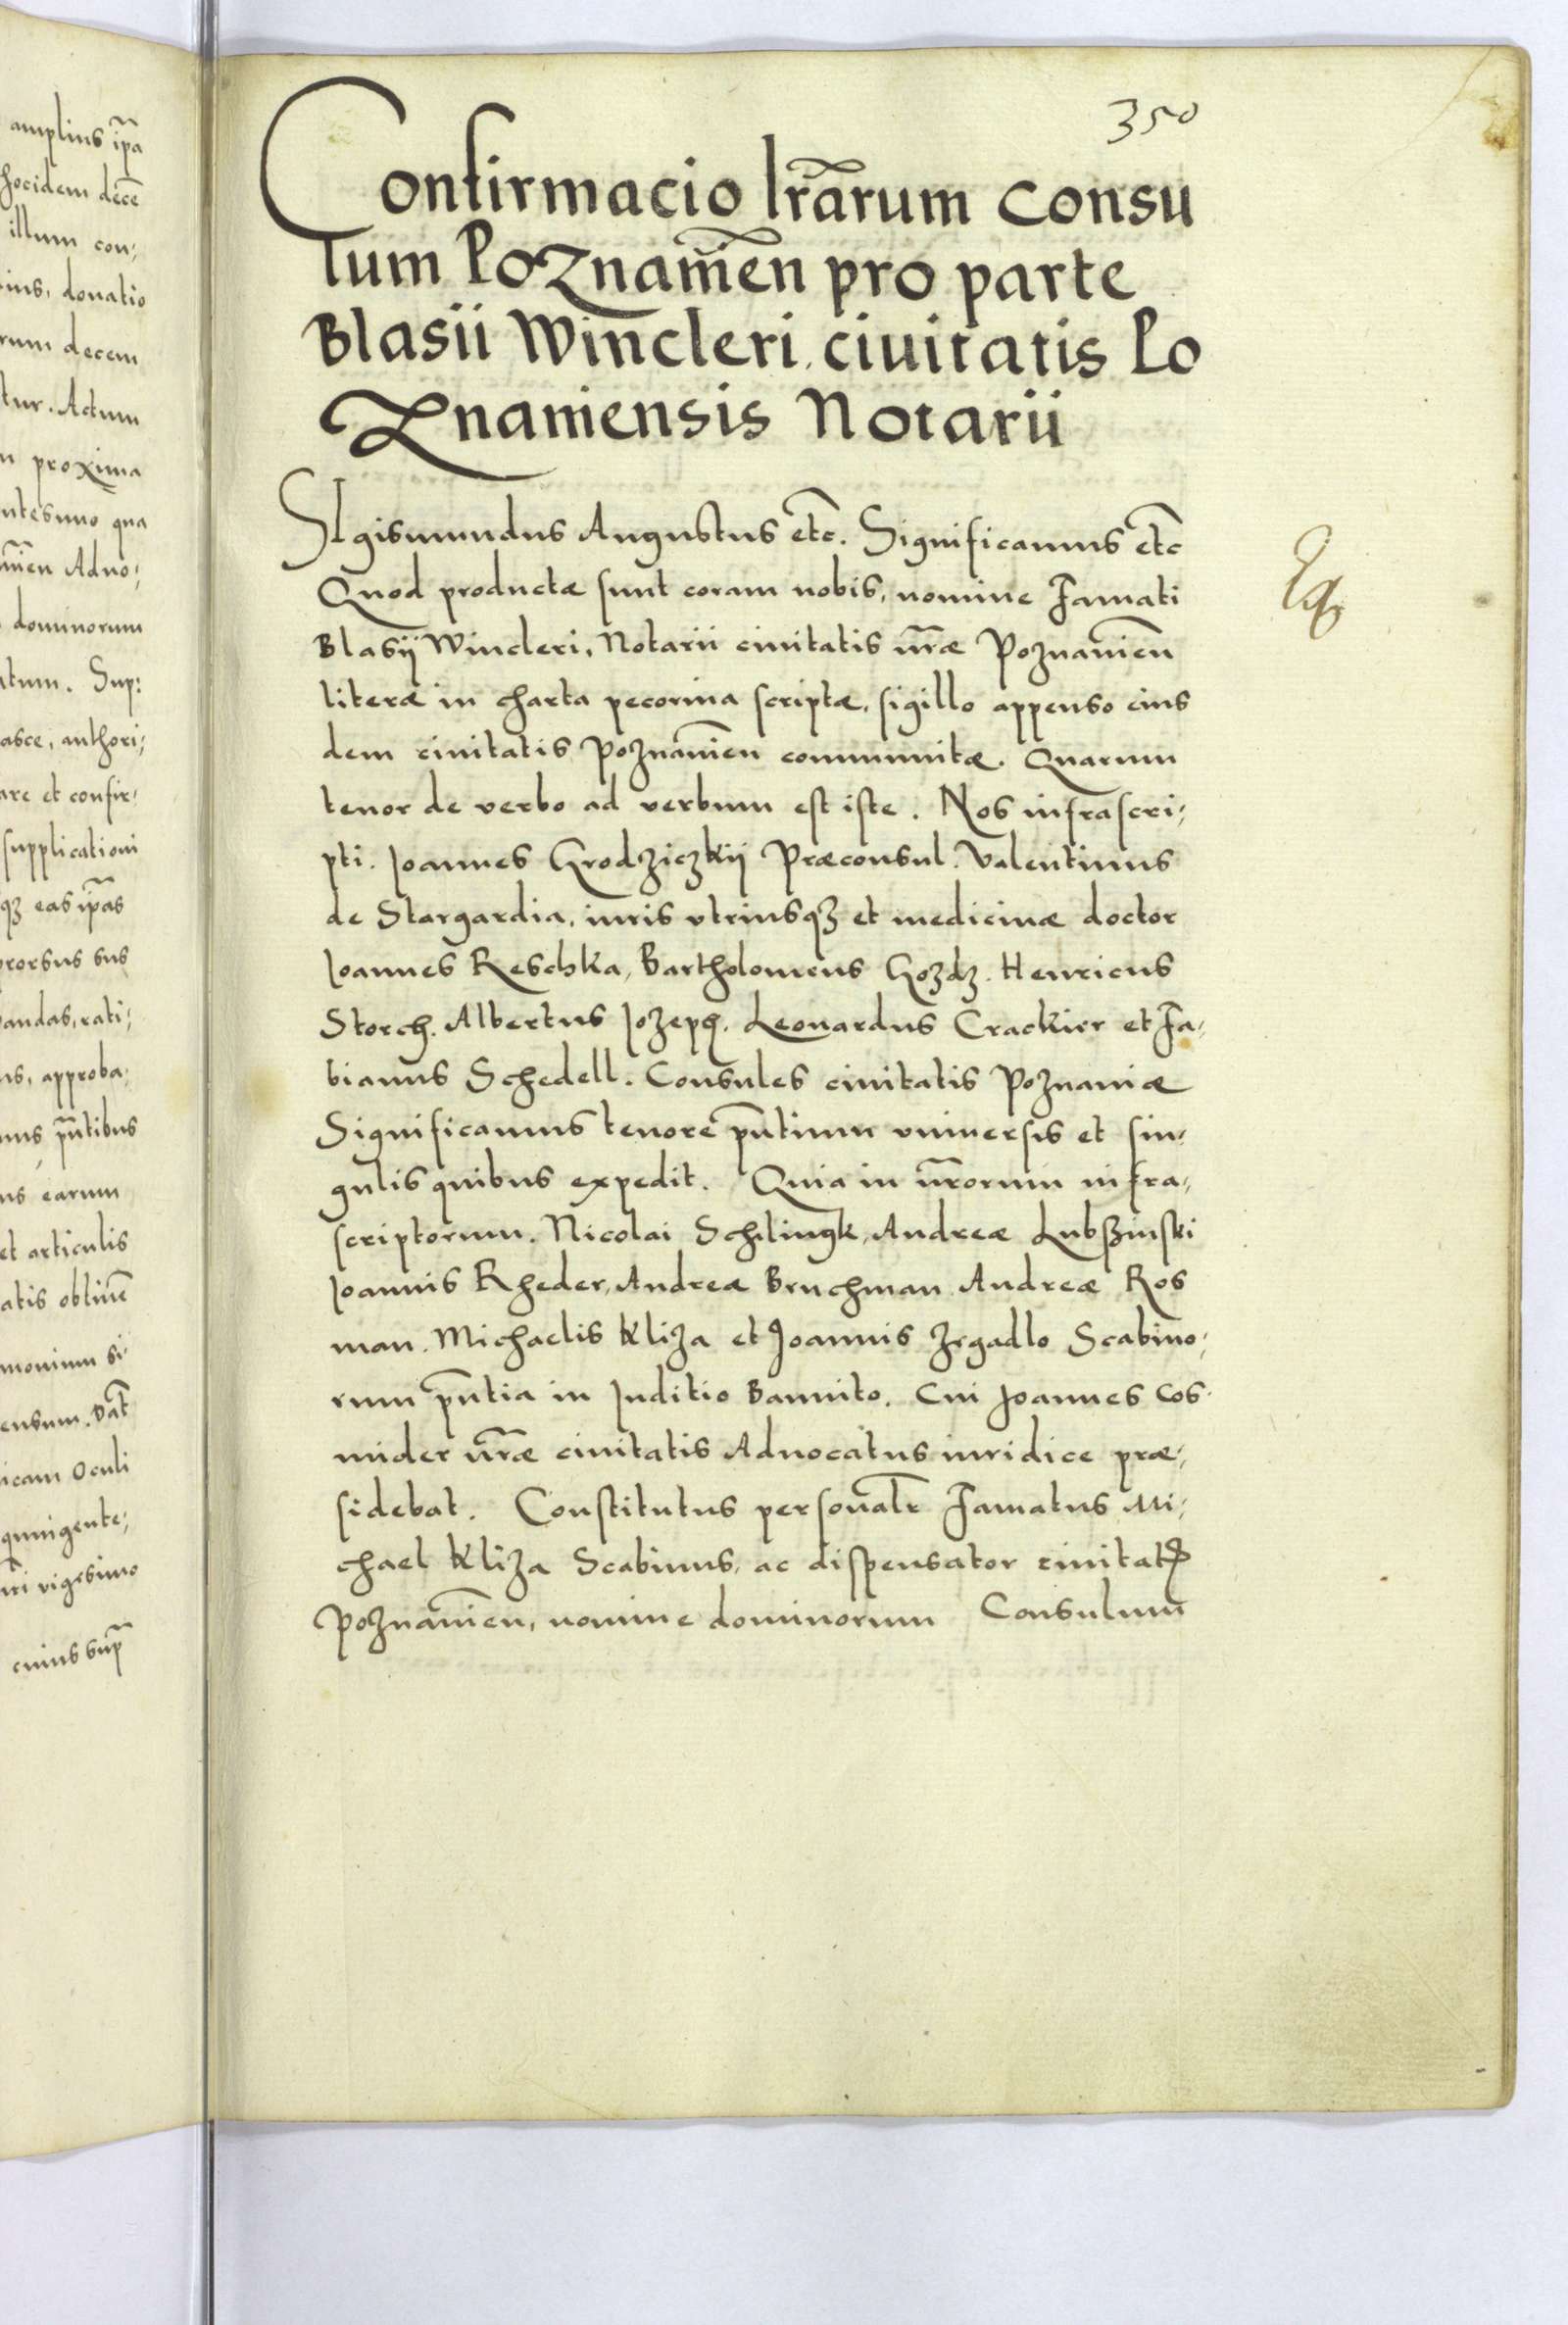 amplius ip̃a
hocidem decē
illum con,
ius, donatio
rum decem
tur. Actum
n proxima
ntesimo qua
m̃en Aduo,
dominorum
tum. Sup:
asce, authori,
are et confir,
supplicationi
qȝ eas ip̃as
rorsus sus
andas, rati,
us, approba,
mus p̃ntibus
us earum
et articulis
atis
monium si,
ensum. Dat̃
icam Oculi
quingente,
vigesimo
cuius sup̃
350
Confirmacio lr̃arum Consu
lum Poznanien̄ pro parte
Blasii Wincleri, ciuitatis Po
Znaniensis Notarii
SIgismundus Augustus etc̃. Significamus etc̃
Quod productæ sunt coram nobis, nomine Famati
Blasij Wincleri, Notarii ciuitatis nr̃æ Poznanien̄
literæ in charta pecorina scriptæ, sigillo appenso eius
dem ciuitatis Poznanien̄ communitæ. Quarum
tenor de verbo ad verbum est iste. Nos infrascri,
pti. Joannes Grodziczkij Præconsul. Valentinus
de Stargardia, iuris vtriusqȝ et medicinæ doctor
Joannes Reschka, Bartholomeus Gozdz. Henricus
Storch. Albertus Jozeph. Leonardus Crackier et Fa,
bianus Schedell. Consules ciuitatis Poznaniæ
Significamus tenore p̃ntium vniuersis et sin,
gulis quibus expedit. Quia in nr̃orum infra,
scriptorum. Nicolai Schlingk, Andreæ Lubszinski
Joannis Rheder, Andreæ Bruchman Andreæ Ros
man. Michaelis Kliza et Joannis Zrgadlo Scabino,
rum p̃ntia in Juditio Bannito. Cui Joannes Cos,
mider nr̃æ ciuitatis Aduocatus iuridice præ,
sidebat. Constitutus personalr̃ Famatus Mi,
chael Kliza Scabinus, ac dispensator ciuitatꝭ
Poznanien̄, nomine dominorum Consulum